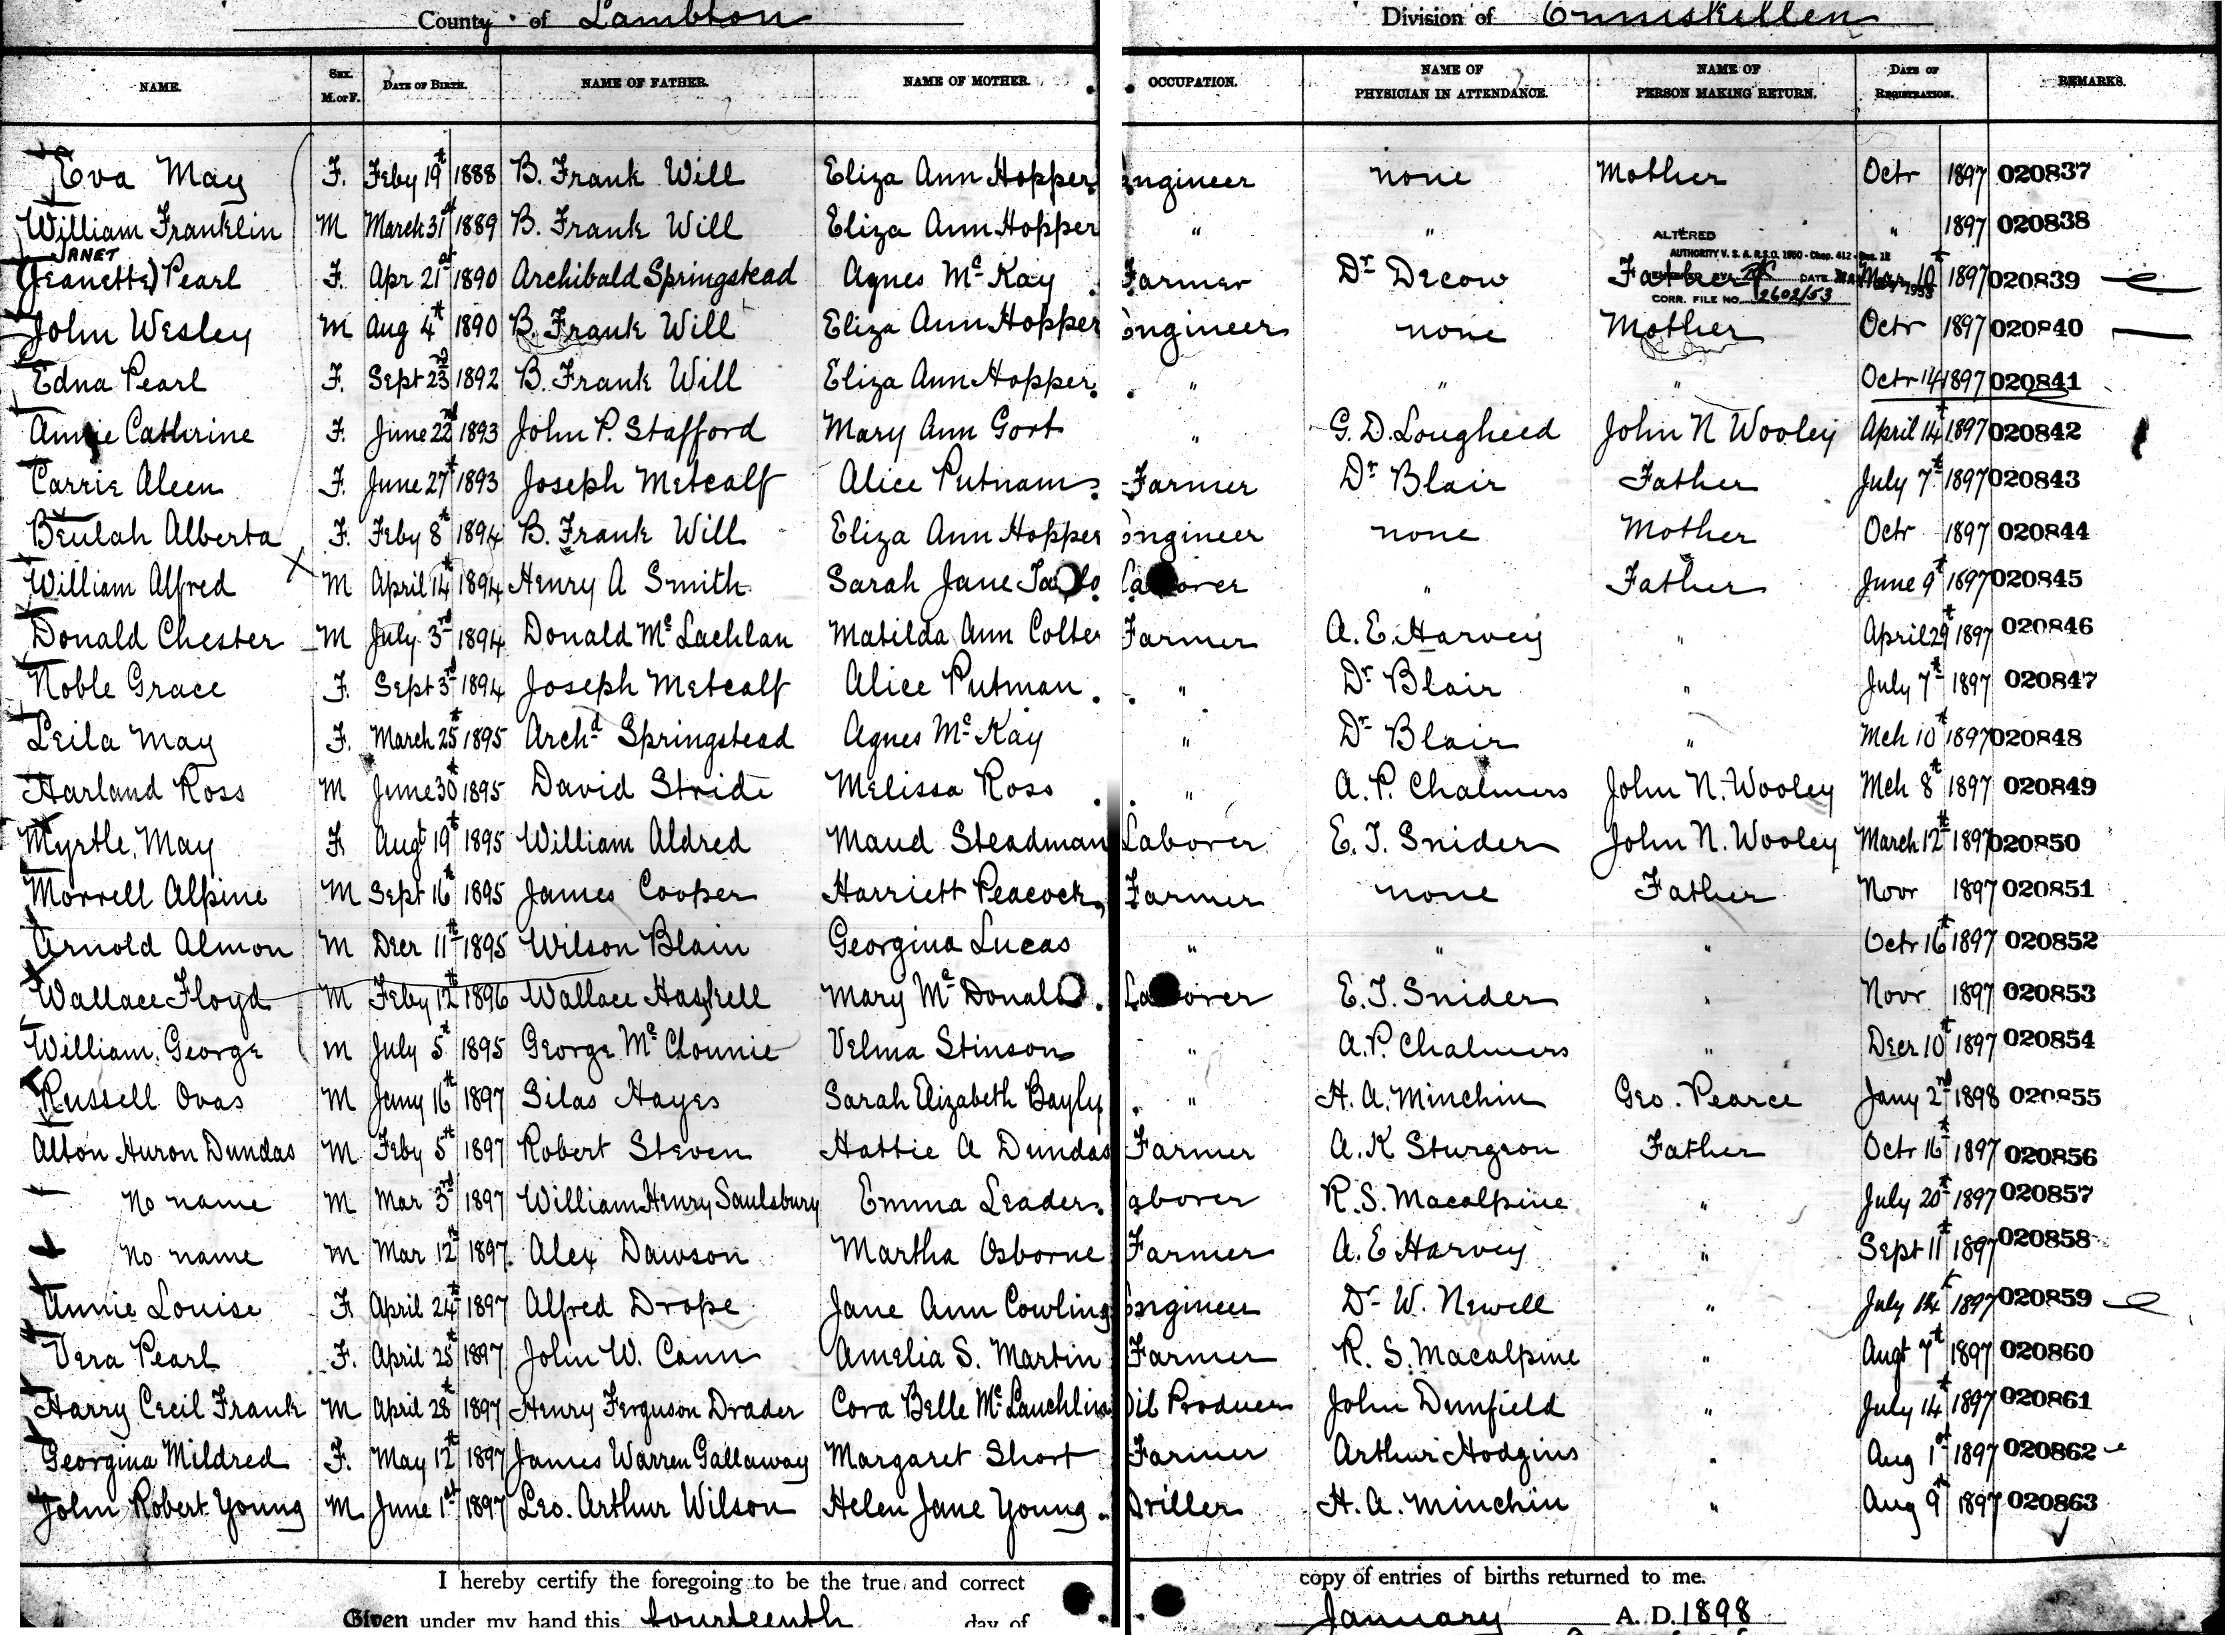 County of Lambton Division of Enniskillen
NAME. SEX. M. or F. DATE OF BIRTH. NAME OF FATHER. NAME OF MOTHER. OCCUPATION. NAME OF PHYSICIAN IN ATTENDANCE. NAME OF PERSON MAKING RETURN. DATE OF REGISTRATION. REMARKS.
Eva May F. Feby 19t 1888 B. Frank Will Eliza Ann Hopper ngineer none Mother Octr 1897 020837
William Franklin M March 31st 1889 B. Frank Will Eliza Ann Hopper " " " 1897 020838
JANET ALTERED
AUTHORITY V. S. A. R.S.O. 1950 - Chap. 412 - Sec. 12
(Jeanette) Pearl F. Apr 21st 1890 Archibald Springstead Agnes Mc Kay Farmer Dr Decow Father Mar 10t 1897 020839
CORR. FILE NO. 2602/53
John Wesley M Aug 4t 1890 B. Frank Will Eliza Ann Hopper ngineer none Mother Octr 1897 020840
Edna Pearl F. Sept 23rd 1892 B. Frank Will Eliza Ann Hopper " " " Octr 14 1897 020841
Annie Cathrine F. June 22nd 1893 John P. Stafford Mary Ann Gort " G. D. Lougheed John N Wooley April 14t 1897 020842
Carrie Aleen F. June 27t 1893 Joseph Metcalf Alice Putnam Farmer Dr Blair Father July 7t 1897 020843
Beulah Alberta F. Feby 8t 1894 B. Frank Will Eliza Ann Hopper ngineer none Mother Octr 1897 020844
William Alfred M April 14t 1894 Henry A Smith Sarah Jane Laborer " Father June 9t 1897 020845
Donald Chester M July 3rd 1894 Donald Mc Lachlan Matilda Ann Colter Farmer A. E. Harvey " April 29t 1897 020846
Noble Grace F. Sept 3rd 1894 Joseph Metcalf Alice Putman " Dr Blair " July 7t 1897 020847
Leila May F. March 25t 1895 Archd Springstead Agnes Mc Kay " Dr Blair " Mch 10t 1897 020848
Harland Ross M June 30t 1895 David Stride Melissa Ross " A. P. Chalmers John N. Wooley Mch 8t 1897 020849
Myrtle May F. Augt 19t 1895 William Aldred Maud Steadman Laborer E. T. Snider John N. Wooley March 12t 1897 020850
Morrell Alpine M Sept 16t 1895 James Cooper Harriett Peacock Farmer none Father Novr 1897 020851
Arnold Almon M Decr 11t 1895 Wilson Blain Georgina Lucas " " " Octr 16t 1897 020852
Wallace Floyd M Feby 12t 1896 Wallace Haskell Mary Mc Donald Laborer E. T. Snider " Novr 1897 020853
William George M July 5t 1895 George Mc Chounie Velma Stinson " A. P. Chalmers " Decr 10t 1897 020854
Russell Ovas M Jany 16t 1897 Silas Hayes Sarah Elizabeth Bayly " H. A. Minchin Geo. Pearce Jany 2nd 1898 020855
Alton Huron Dundas M Feby 5t 1897 Robert Steven Hattie A Dundas Farmer A. K Sturgeon Father Octr 16t 1897 020856
No name M Mar 3rd 1897 William Henry Saulsbury Emma Leader aborer R. S. Macalpine " July 20t 1897 020857
No name M Mar 12t 1897 Alex Dawson Martha Osborne Farmer A. E Harvey " Sept 11t 1897 020858
Annie Louise F. April 24t 1897 Alfred Drope Jane Ann Cowling Engineer Dr W. Newell " July 14t 1897 020859
Vera Pearl F. April 25t 1897 John W. Cann Amelia S. Martin Farmer R. S. Macalpine " Augt 7t 1897 020860
Harry Cecil Frank M April 28t 1897 Henry Ferguson Drader Cora Belle Mc Lauchlin Oil Producer John Dunfield " July 14t 1897 020861
Georgina Mildred F. May 12t 1897 James Warren Gallaway Margaret Short Farmer Arthur Hodgins " Aug 1st 1897 020862
John Robert Young M June 1st 1897 Leo. Arthur Wilson Helen Jane Young Driller H. A. Minchin " Aug 9t 1897 020863
I hereby certify the foregoing to be the true and correct copy of entries of births returned to me.
Given under my hand this fourteenth day of January A. D. 1898